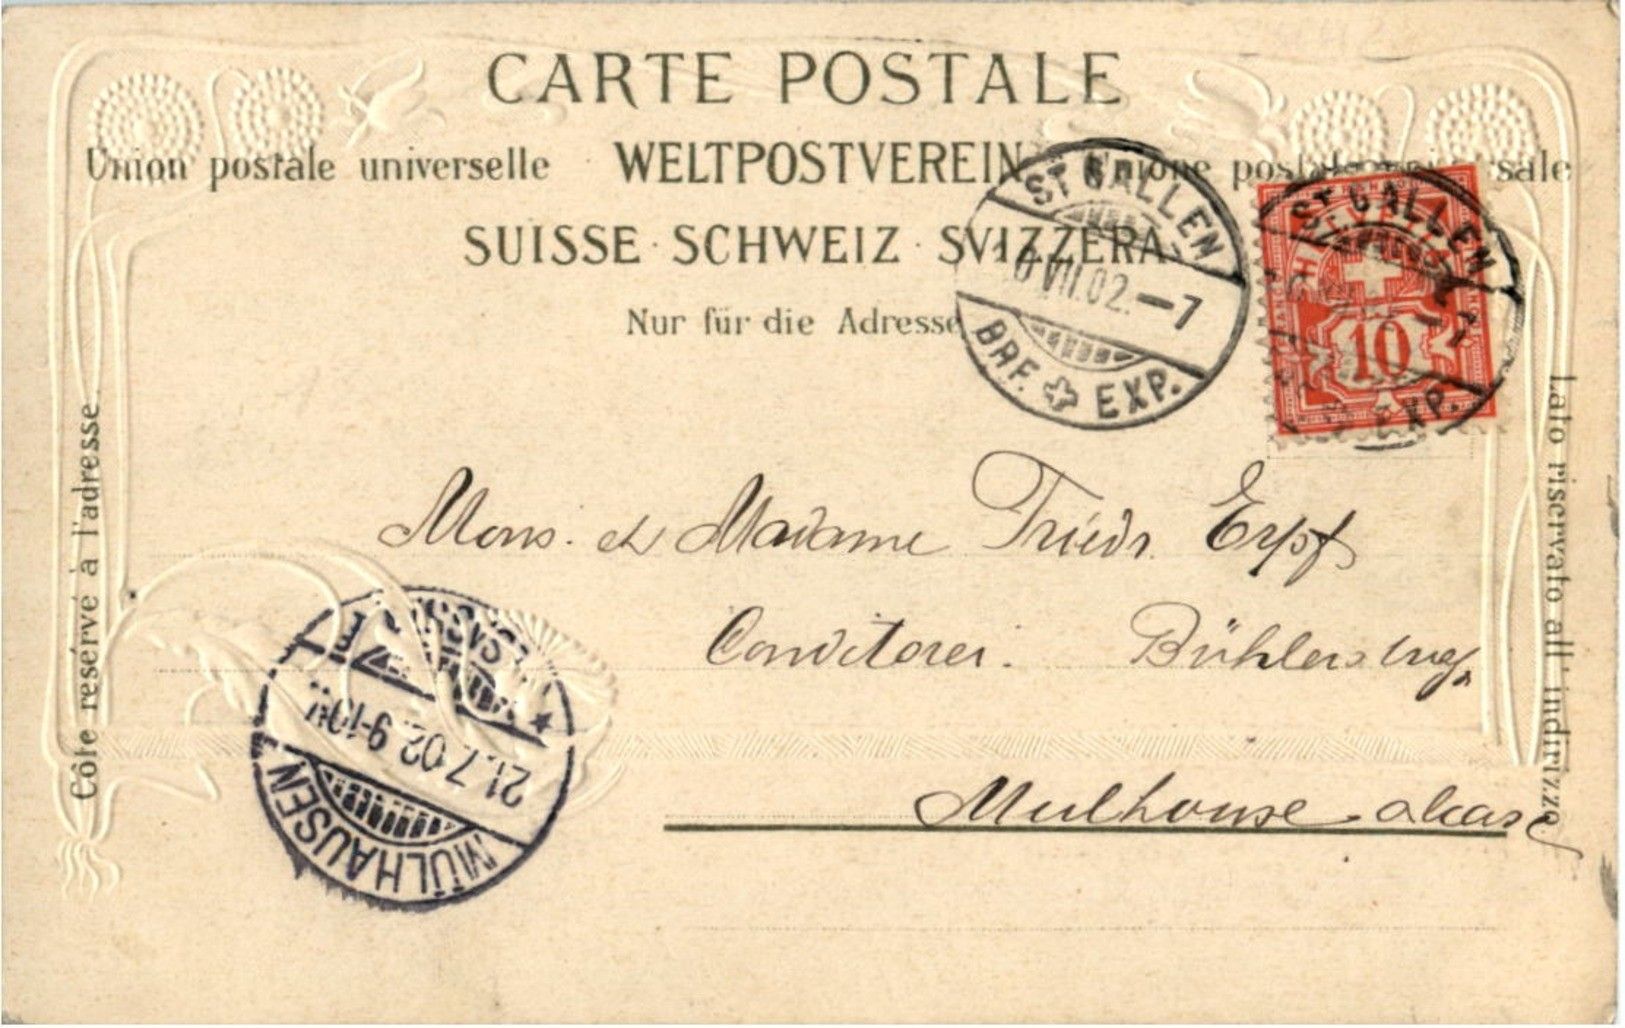 CARTE POSTALE
Union postale universelle WELTPOSTVEREIN Unione postale universale
SUISSE · SCHWEIZ · SVIZZERA
Nur für die Adresse
ST. GALLEN
VII.02.-7
BRF. EXP.
ST. GALLEN
-7
EXP.
10
Côté réservé à l'adresse.
Lato riservato all'indirizzo.
Mons. et Madame Friedr. Erpf
Conditorei.
Mulhouse Alsace
MÜLHAUSEN
21.7.02.9-10V.